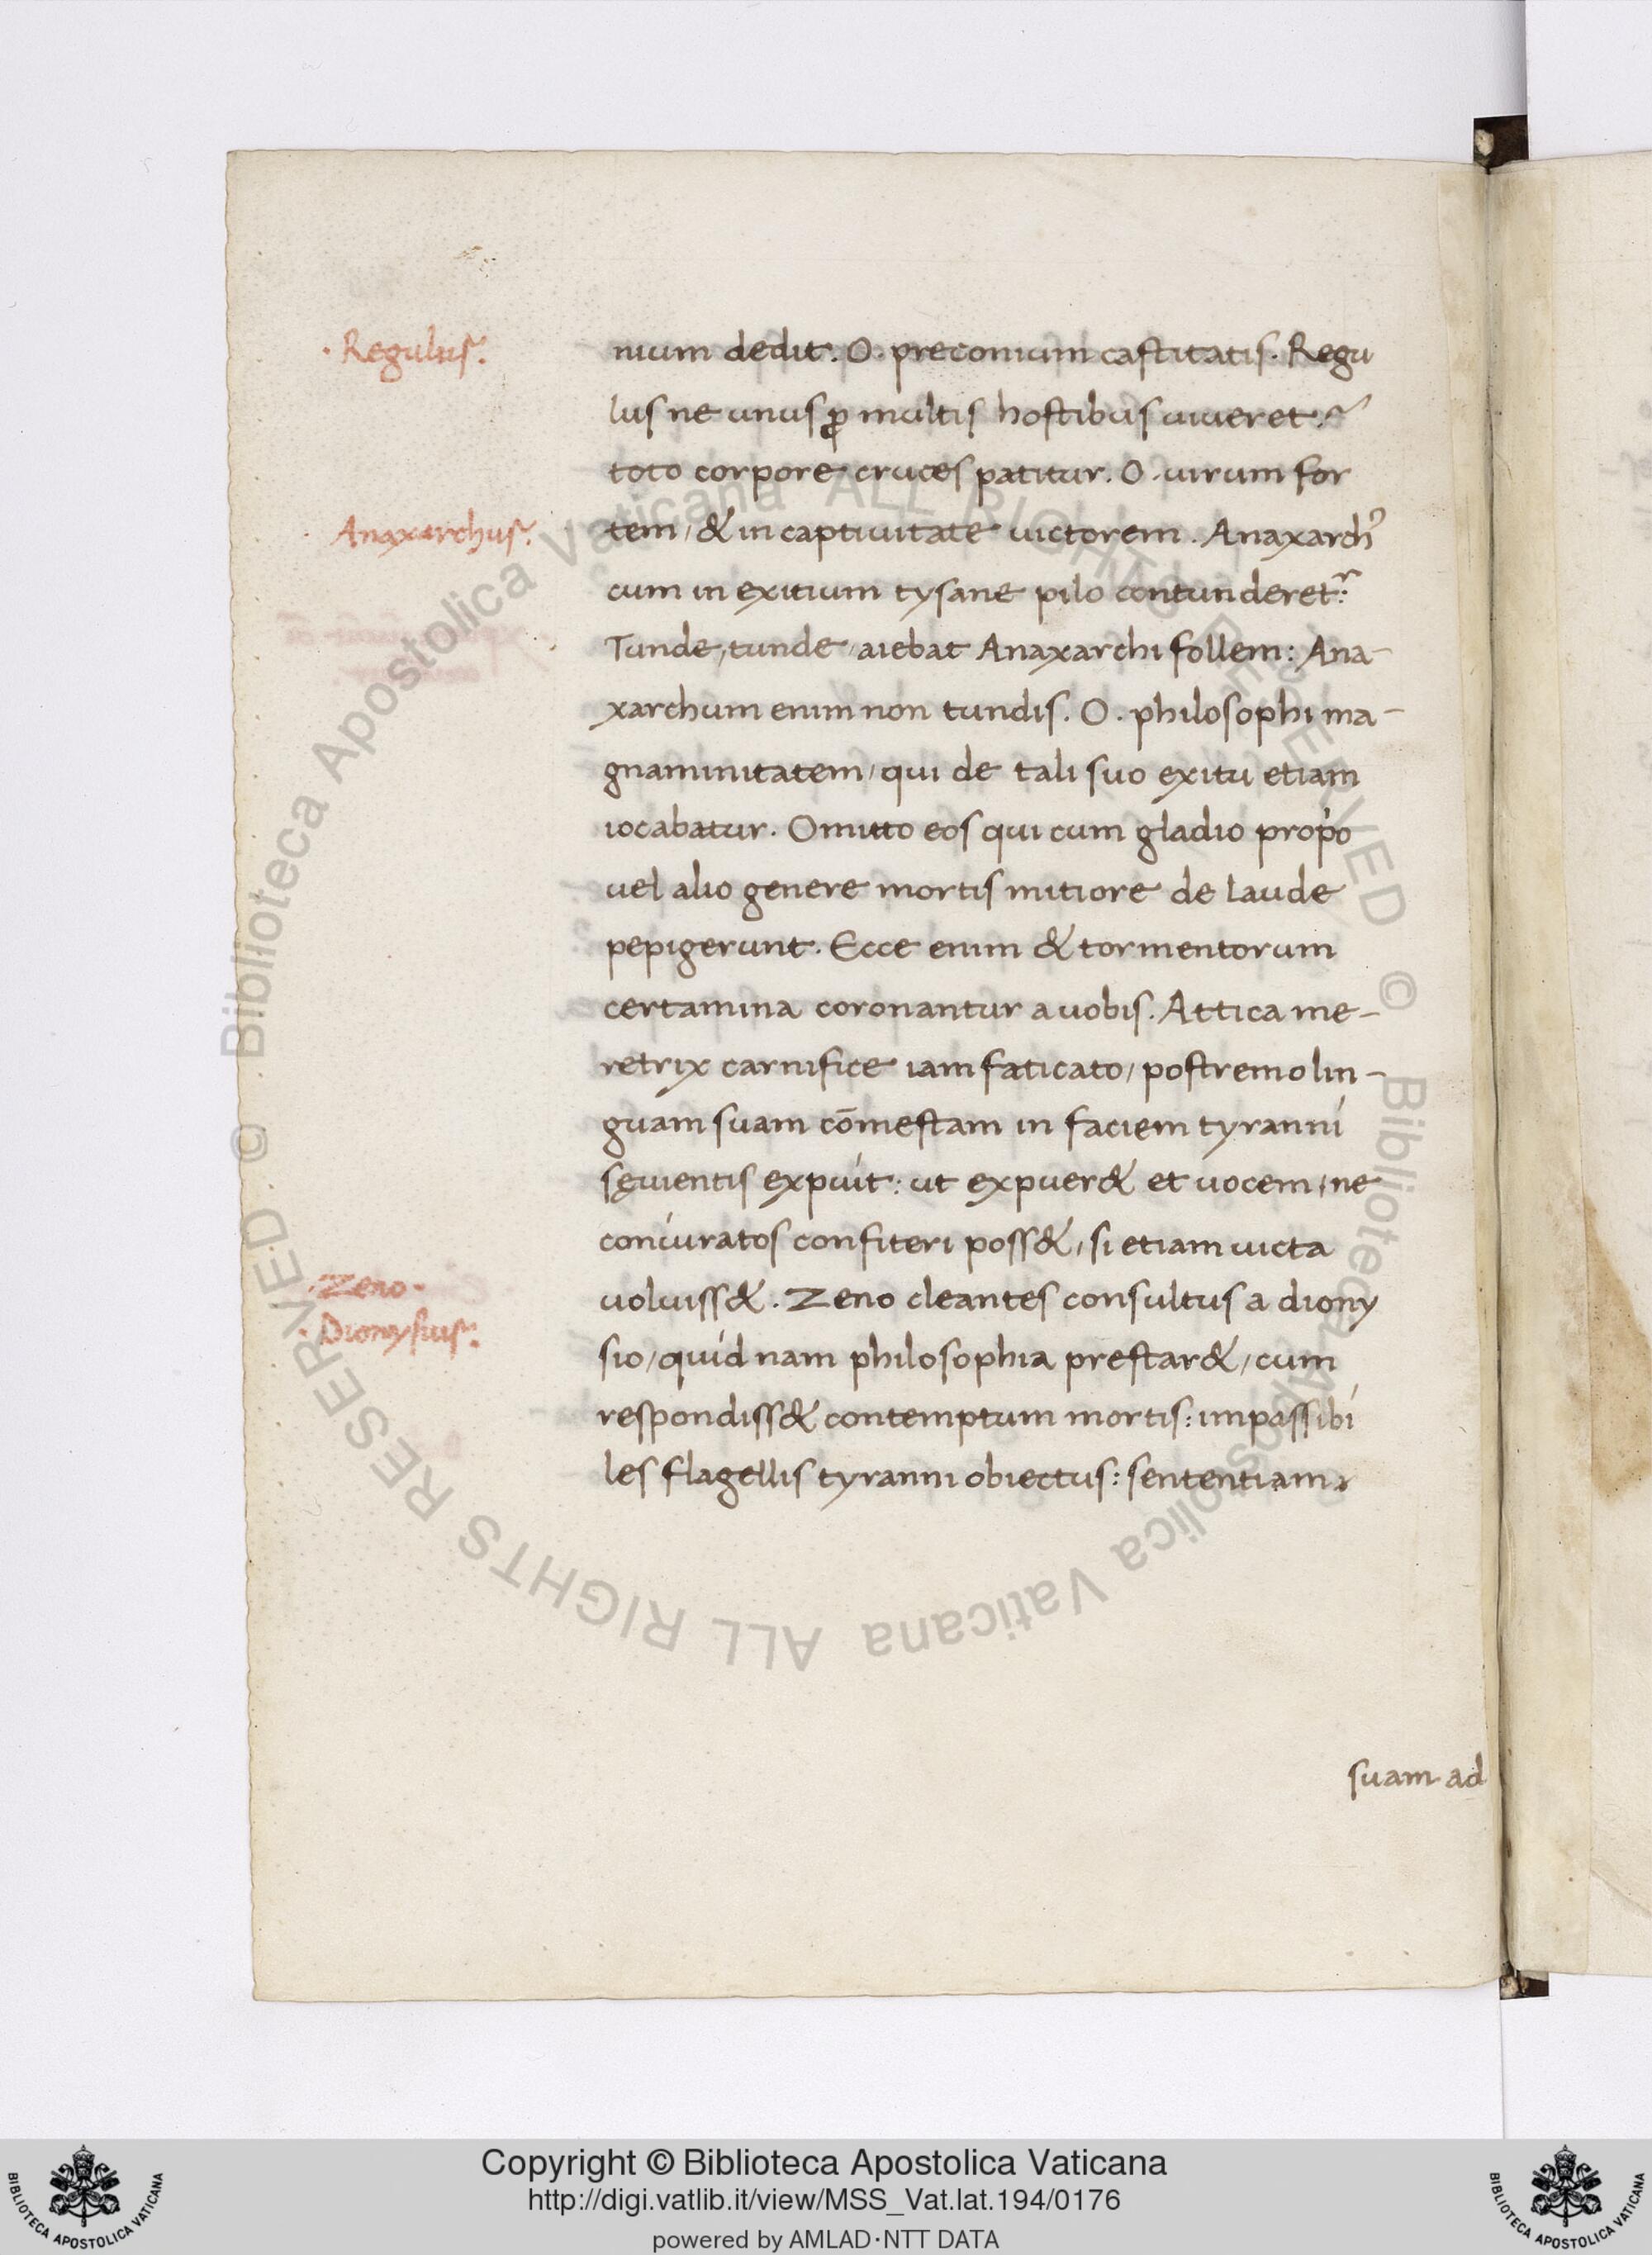 · Regulus.
nium dedit. O. preconium castitatis. Regu
lus ne unus ꝓ multis hostibus uiueret:
toto corpore cruces patitur. O. uirum for
· Anaxarchus.
tem / & in captiuitate uictorem. Anaxarchꝰ
cum in exitium tysane pilo contunderet᷑:
Tunde, tunde / aiebat Anaxarchi follem: Ana-
xarchum enim non tundis. O. philosophi ma-
gnaminitatem / qui de tali suo exitu etiam
iocabatur. Omitto eos qui cum gladio propo
uel alio genere mortis mitiore de laude
pepigerunt. Ecce enim & tormentorum
certamina coronantur a uobis. Attica me-
retrix carnifice iam faticato / postremo lin-
guam suam cōmestam in faciem tyranni
sęuientis expuit: ut expuer& et uocem / ne
coniuratos confiteri poss& / si etiam uicta
· Zeno ·
uoluiss&. Zeno cleantes consultus a diony
· Dionysius.
sio / quid nam philosophia prestar& / cum
respondiss& contemptum mortis: impassibi
les flagellis tyranni obiectus: sententiam
suam ad
© Biblioteca Apostolica Vaticana ALL RIGHTS RESERVED © Biblioteca Apostolica Vaticana ALL RIGHTS RESERVED
Copyright © Biblioteca Apostolica Vaticana
http://digi.vatlib.it/view/MSS_Vat.lat.194/0176
powered by AMLAD·NTT DATA
BIBLIOTECA APOSTOLICA VATICANA
BIBLIOTECA APOSTOLICA VATICANA